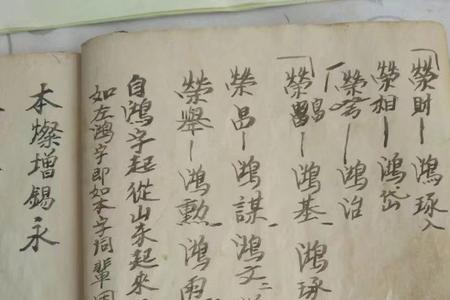 榮財 鴻琢入
榮相 鴻岱
榮 鴻治
榮 鴻基 鴻琢
榮昌 鴻謀 鴻文
榮舉 鴻勲 鴻
自鴻字起從山东起來
如左鴻字即如本字同輩
本燦增錫永